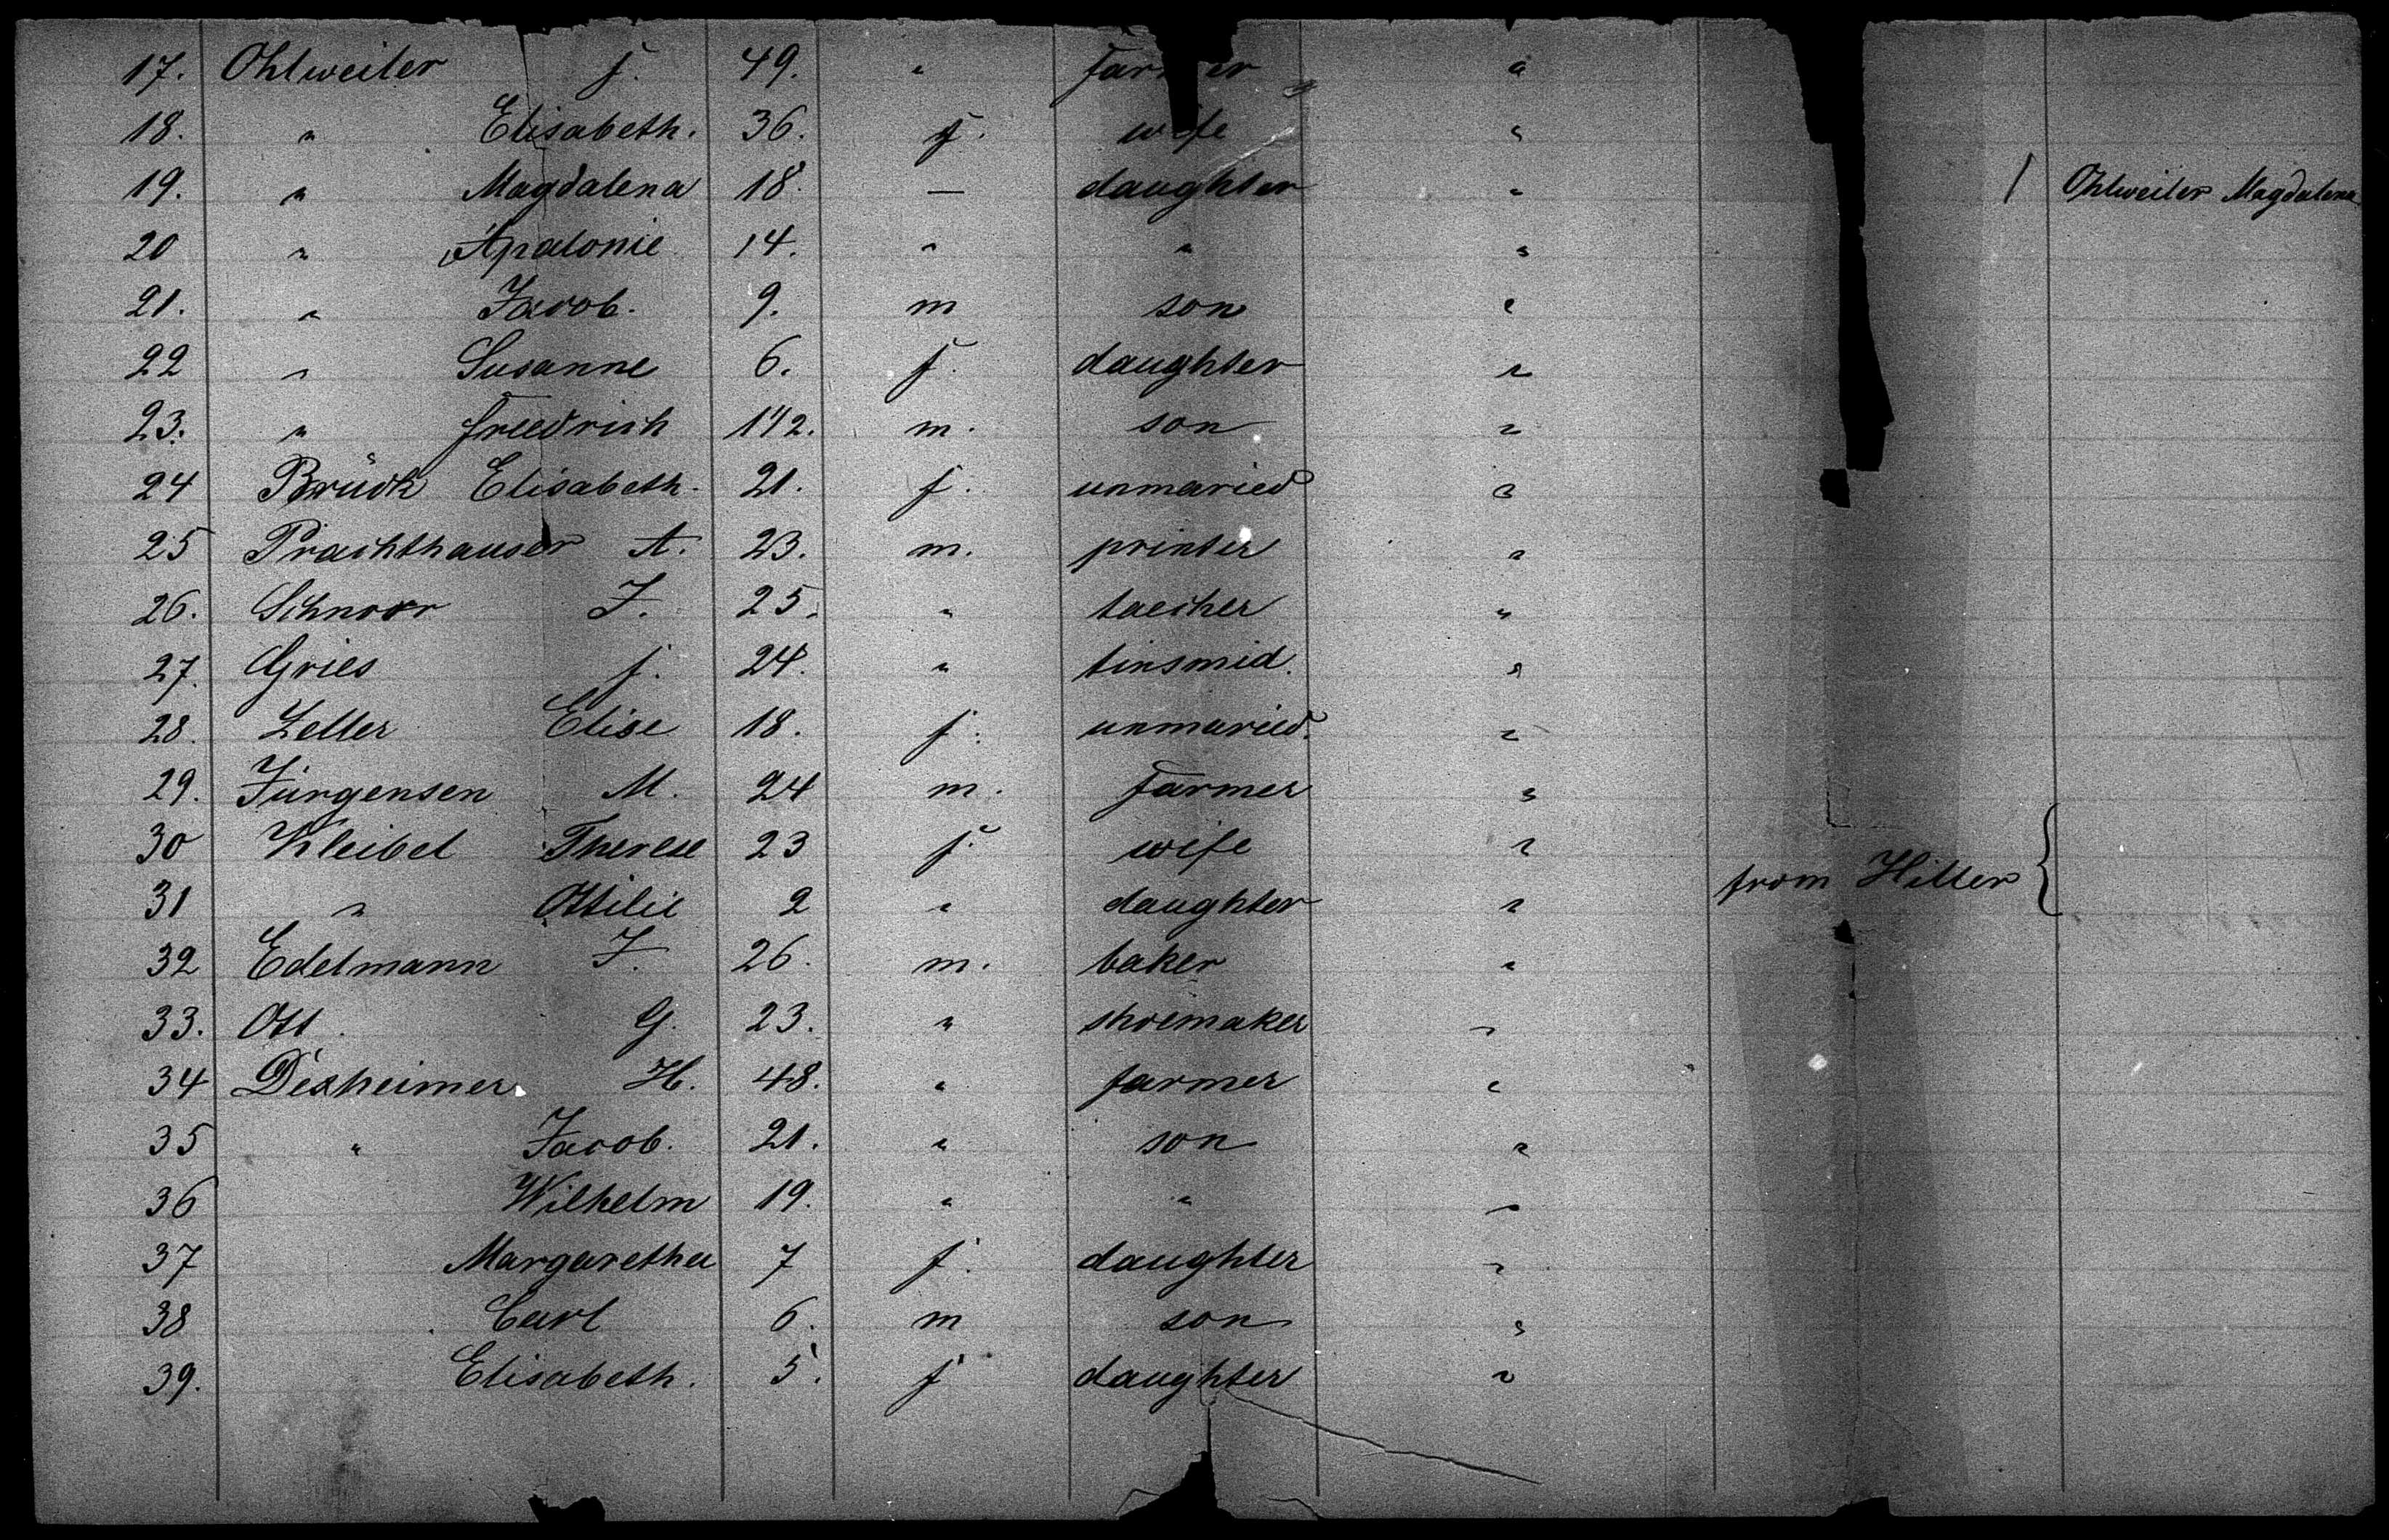 17. Ohlweiler J. 49. " Farmer "
18. " Elisabeth. 36. f. wife "
19. " Magdalena 18. — daughter " 1 Ohlweiler Magdalena
20 " Apalonie 14. " " "
21. " Jacob. 9. m son "
22 " Susanne 6. f. daughter "
23. " Friedrich 1 1/2. m. son "
24 Brück Elisabeth. 21. f. unmaried "
25 Prachthauser A. 23. m. printer "
26. Schnoor J. 25. " taecher "
27. Gries J. 24. " tinsmid. "
28. Zeller Elise 18. f. unmaried. "
29. Jürgensen M. 24 m. Farmer "
30 Kleibel Therese 23 f. wife "
31 " Ottilie 2 " daughter " from Hiller {
32 Edelmann J. 26. m. baker "
33. Ott. G. 23. " shoemaker "
34 Dexheimer H. 48. " farmer "
35 " Jacob. 21. " son "
36 Wilhelm 19. " " "
37 Margaretha 7 f. daughter "
38 Carl 6. m son "
39. Elisabeth. 5. f daughter "